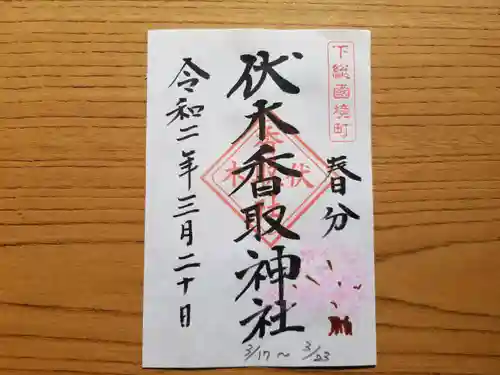 下総國境町
春分
伏木香取神社
令和二年三月二十日
3/17〜3/23